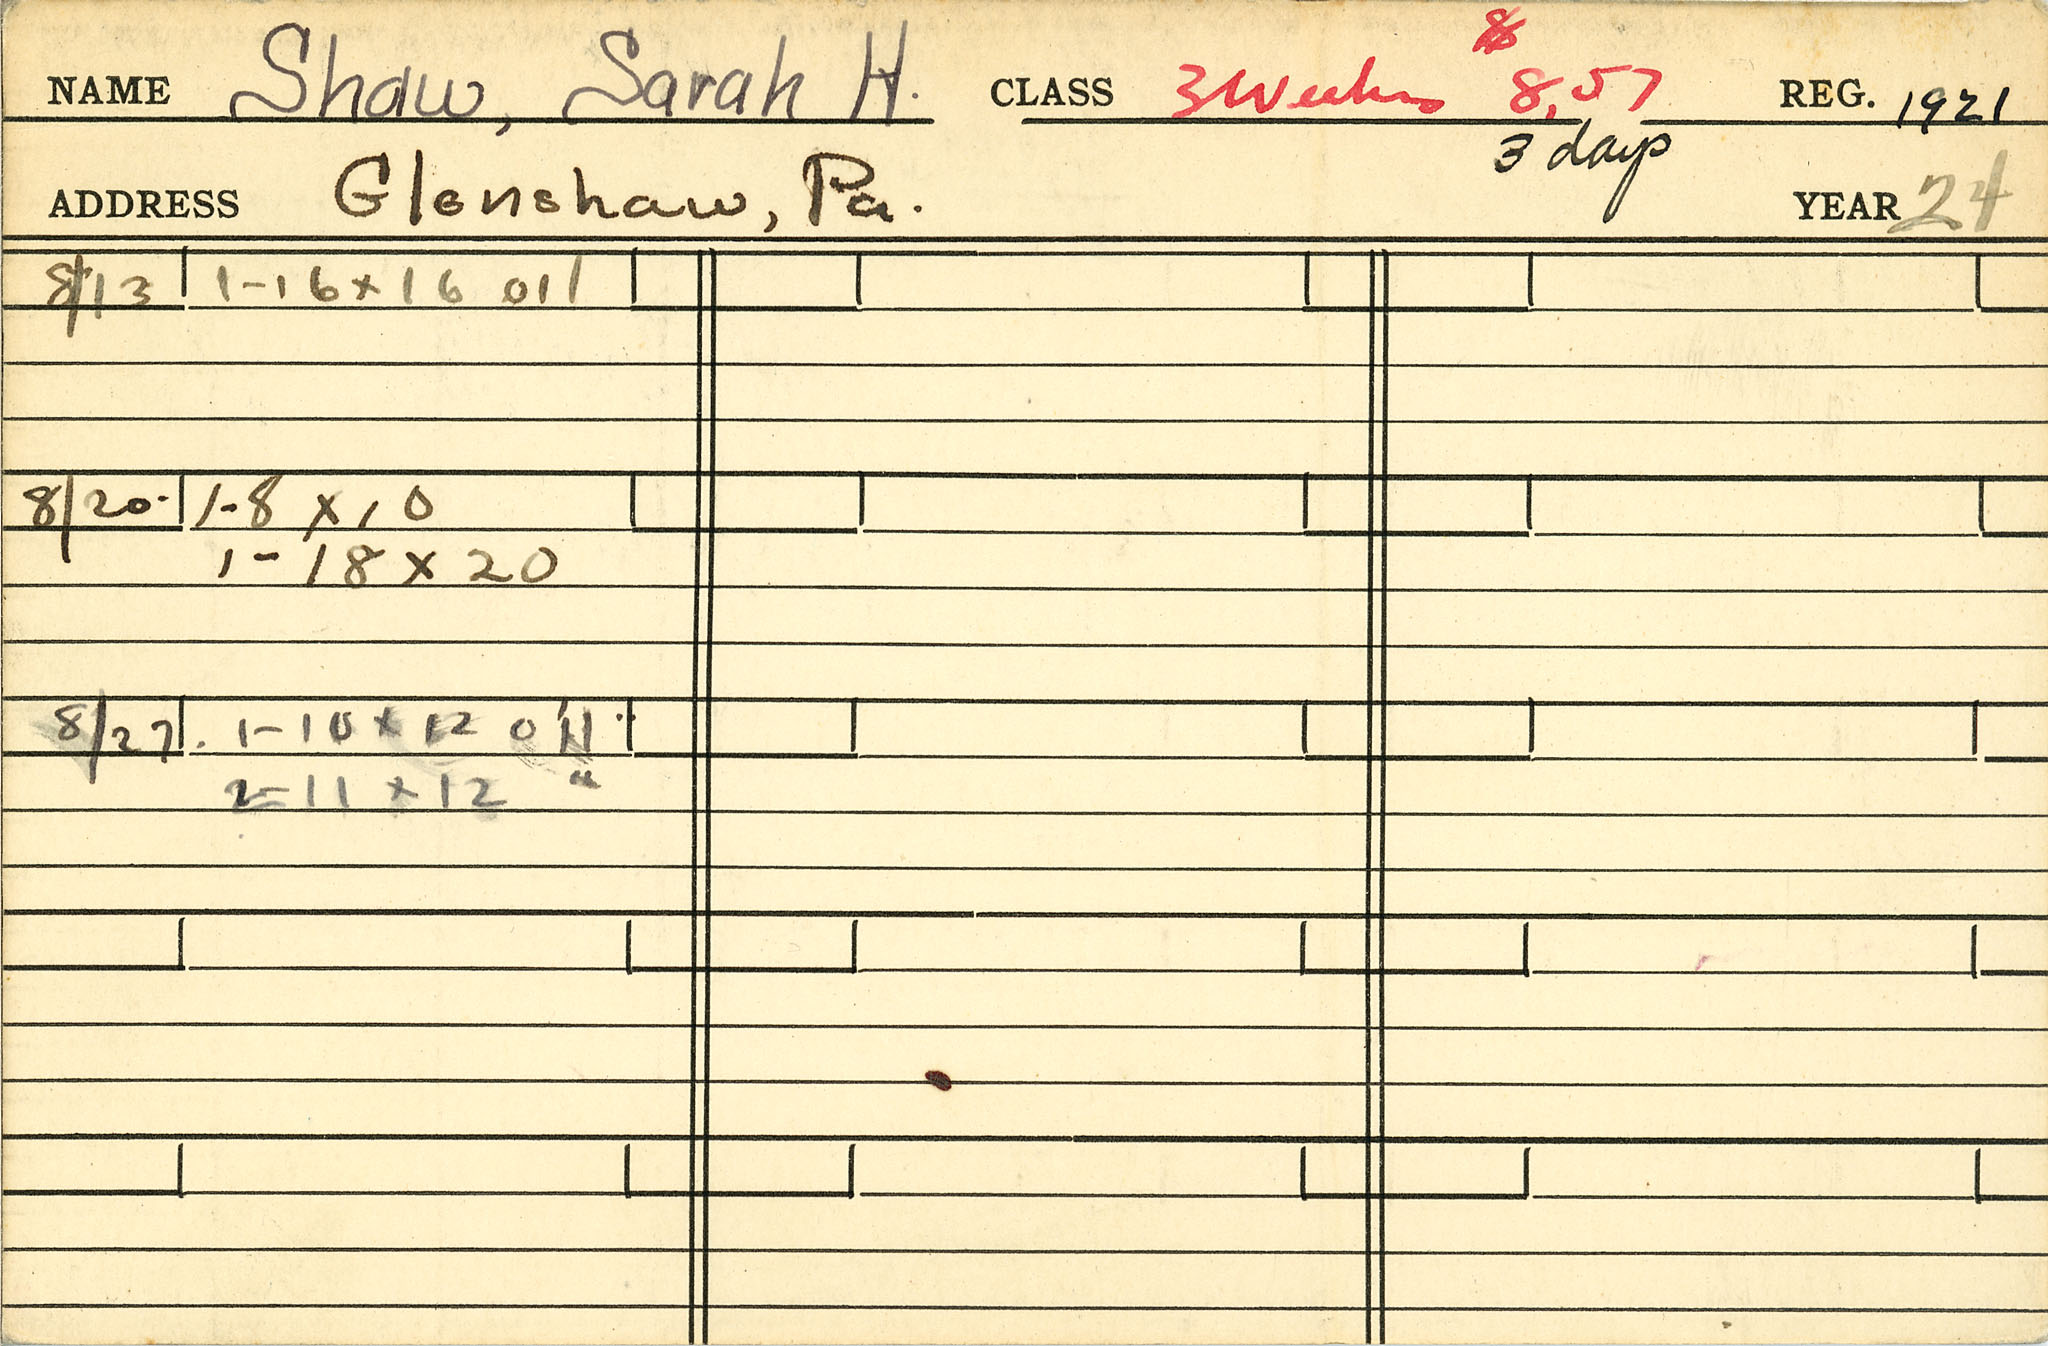 NAME Shaw, Sarah H. CLASS 3 Weeks $8,57 REG. 1921
3 days
ADDRESS Glenshaw, Pa. YEAR 24
8/13 1-16x16 oil
8/20. 1-8x10
1-18x20
8/27. 1-10x12 oil
2-11x12 "